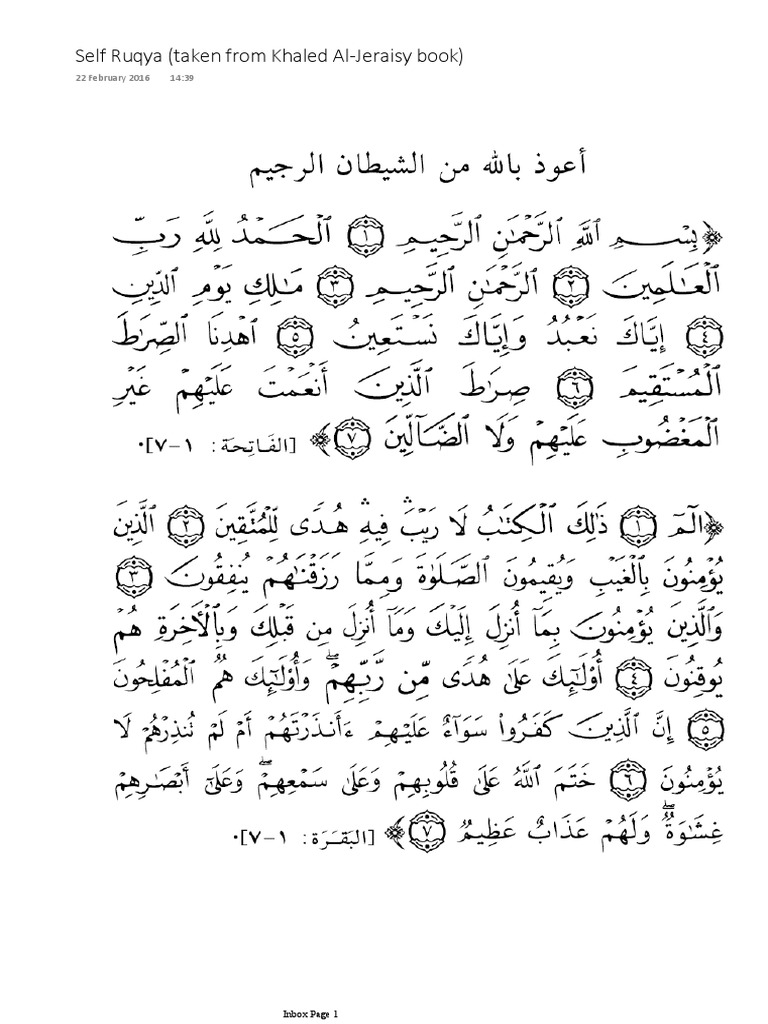 Self Ruqya (taken from Khaled Al-Jeraisy book)
22 February 2016 14:39
أعوذ بالله من الشيطان الرجيم
﴿بِسْمِ ٱللَّهِ ٱلرَّحْمَٰنِ ٱلرَّحِيمِ ١ ٱلْحَمْدُ لِلَّهِ رَبِّ
ٱلْعَٰلَمِينَ ٢ ٱلرَّحْمَٰنِ ٱلرَّحِيمِ ٣ مَٰلِكِ يَوْمِ ٱلدِّينِ
٤ إِيَّاكَ نَعْبُدُ وَإِيَّاكَ نَسْتَعِينُ ٥ ٱهْدِنَا ٱلصِّرَٰطَ
ٱلْمُسْتَقِيمَ ٦ صِرَٰطَ ٱلَّذِينَ أَنْعَمْتَ عَلَيْهِمْ غَيْرِ
ٱلْمَغْضُوبِ عَلَيْهِمْ وَلَا ٱلضَّآلِّينَ ٧﴾ [الفَاتِحَة: ١-٧].
﴿الٓمٓ ١ ذَٰلِكَ ٱلْكِتَٰبُ لَا رَيْبَ ۛ فِيهِ ۛ هُدًى لِّلْمُتَّقِينَ ٢ ٱلَّذِينَ
يُؤْمِنُونَ بِٱلْغَيْبِ وَيُقِيمُونَ ٱلصَّلَوٰةَ وَمِمَّا رَزَقْنَٰهُمْ يُنفِقُونَ ٣
وَٱلَّذِينَ يُؤْمِنُونَ بِمَآ أُنزِلَ إِلَيْكَ وَمَآ أُنزِلَ مِن قَبْلِكَ وَبِٱلْءَاخِرَةِ هُمْ
يُوقِنُونَ ٤ أُو۟لَٰٓئِكَ عَلَىٰ هُدًى مِّن رَّبِّهِمْ ۖ وَأُو۟لَٰٓئِكَ هُمُ ٱلْمُفْلِحُونَ
٥ إِنَّ ٱلَّذِينَ كَفَرُوا۟ سَوَآءٌ عَلَيْهِمْ ءَأَنذَرْتَهُمْ أَمْ لَمْ تُنذِرْهُمْ لَا
يُؤْمِنُونَ ٦ خَتَمَ ٱللَّهُ عَلَىٰ قُلُوبِهِمْ وَعَلَىٰ سَمْعِهِمْ ۖ وَعَلَىٰٓ أَبْصَٰرِهِمْ
غِشَٰوَةٌ ۖ وَلَهُمْ عَذَابٌ عَظِيمٌ ٧﴾ [البَقَرَة: ١-٧].
Inbox Page 1